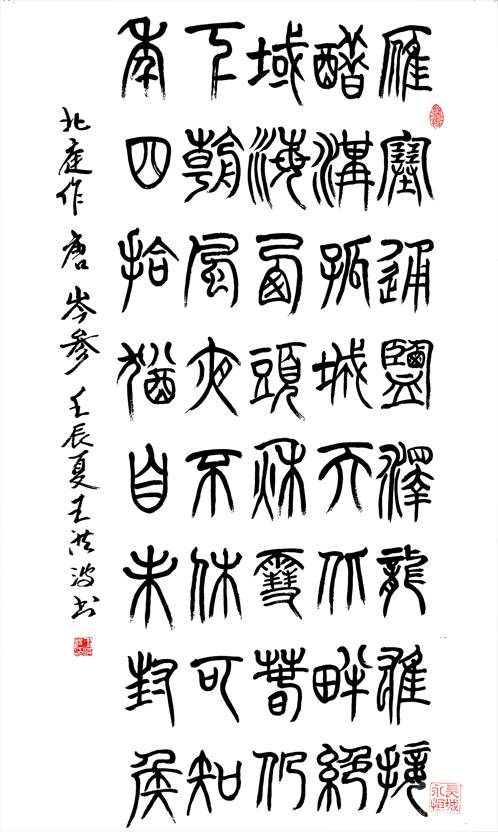 雁塞通鹽澤龍堆接
醋溝孤城天北畔絕
域海西頭秋雪春仍
下朝風夜不休可知
年四拾猶自未封侯
北庭作 唐 岑參 壬辰夏王洪波书
長城永恒